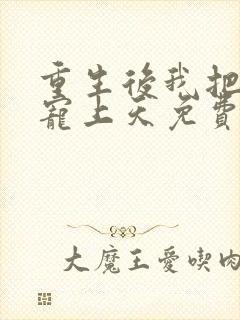 重生後我把
寵上天免費
大魔王愛喫肉